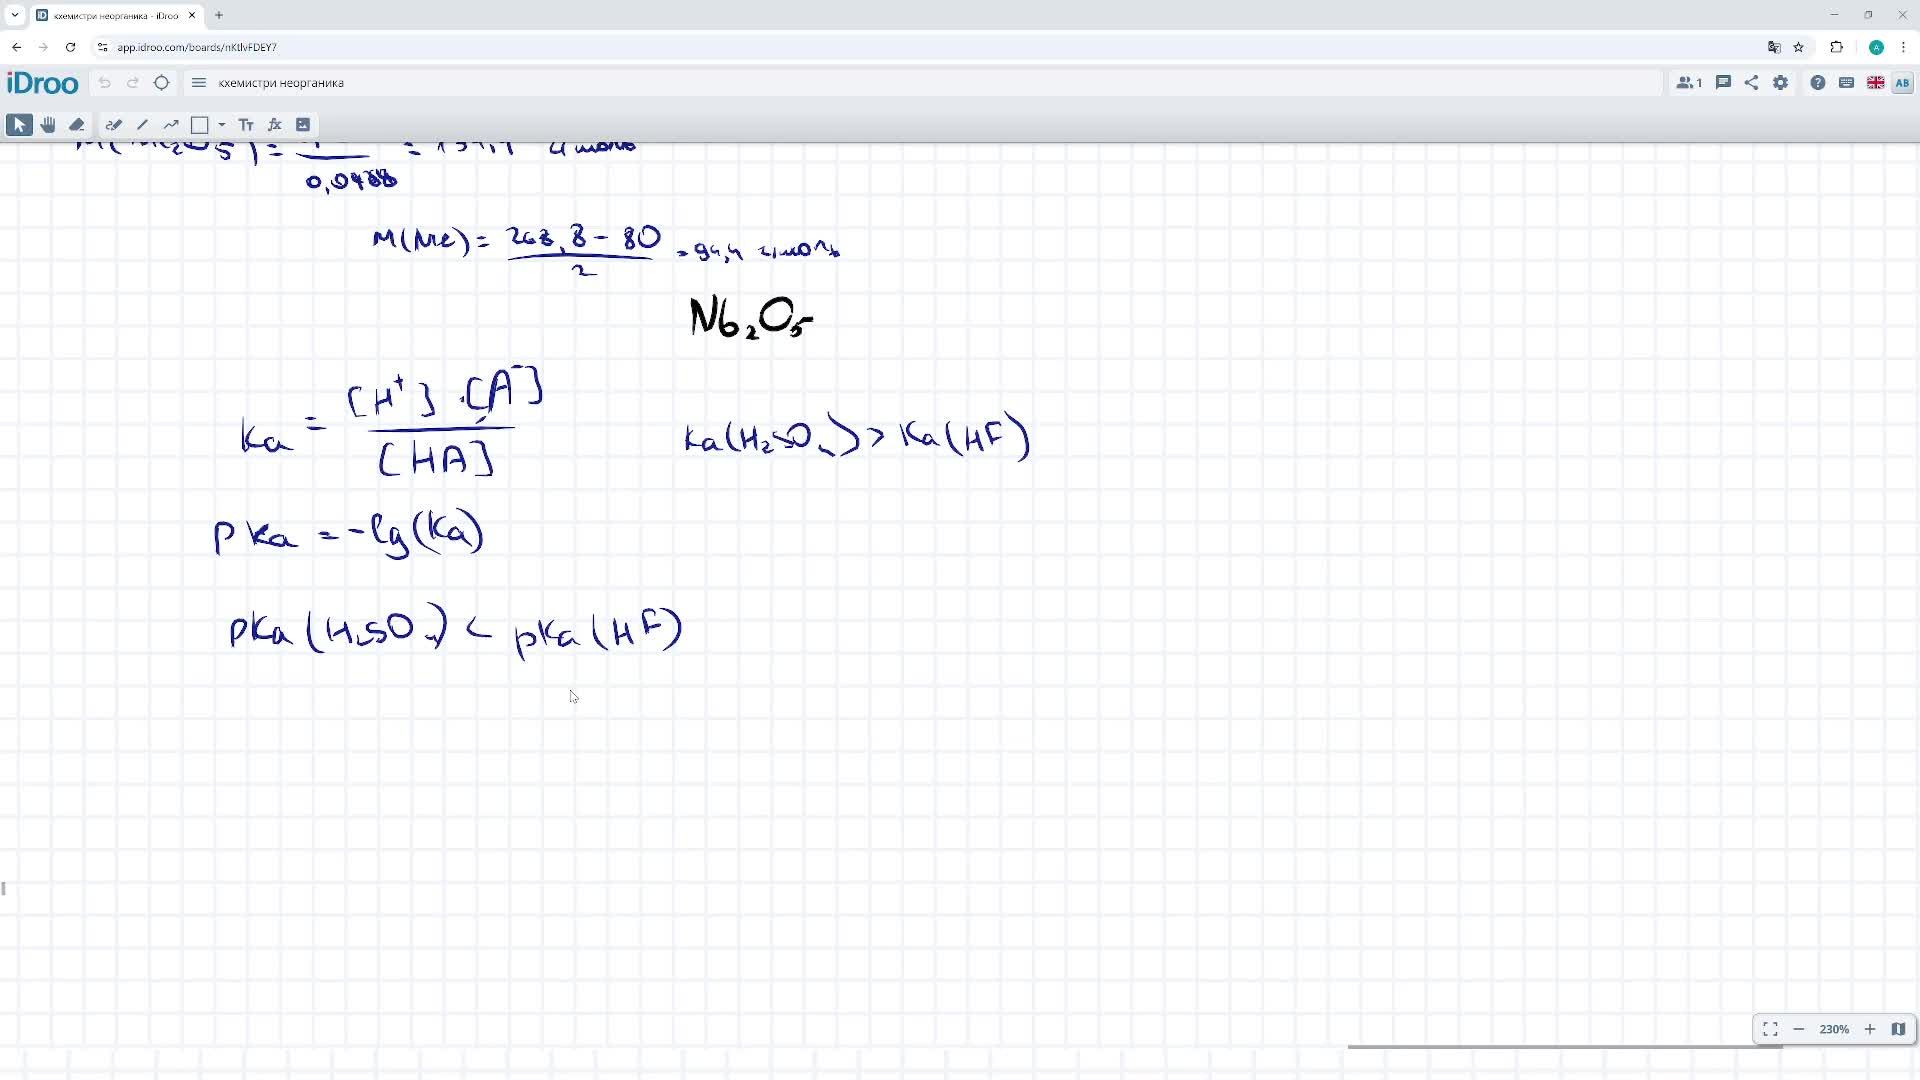 кхемистри неорганика - iDroo
app.idroo.com/boards/nKtlvFDEY7
iDroo
кхемистри неорганика
1
AB
Tт
fx
0,0488
M(Me) = 268,8 - 80 / 2 = 94,4 г/моль
Nb₂O₅
Ka = [H⁺] · [A⁻] / [HA]
Ka(H₂SO₄) > Ka(HF)
pKa = -lg(Ka)
pKa(H₂SO₄) < pKa(HF)
230%